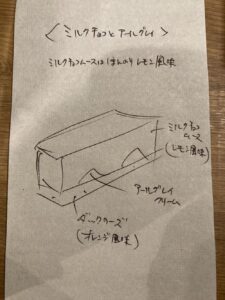 〈ミルクチョコとアールグレイ〉
ミルクチョコムースは ほんのり レモン風味
ミルクチョコ
ムース
(レモン風味)
アールグレイ
クリーム
ダックワーズ
(オレンジ風味)